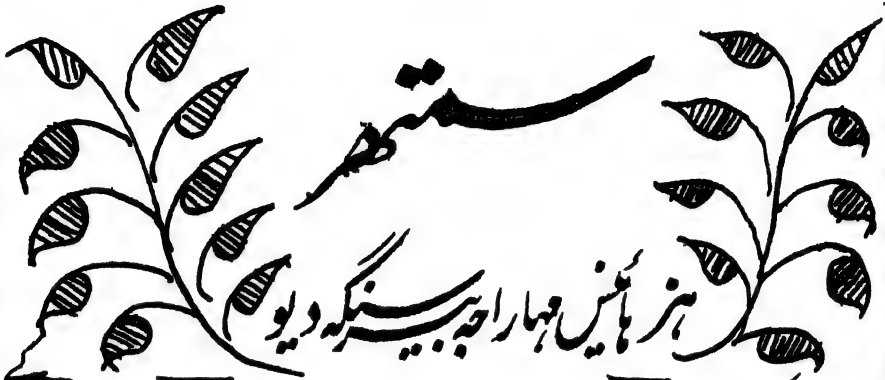 سمتھر
ہز ہائینس مہاراجہ بیر سنگہ دیو